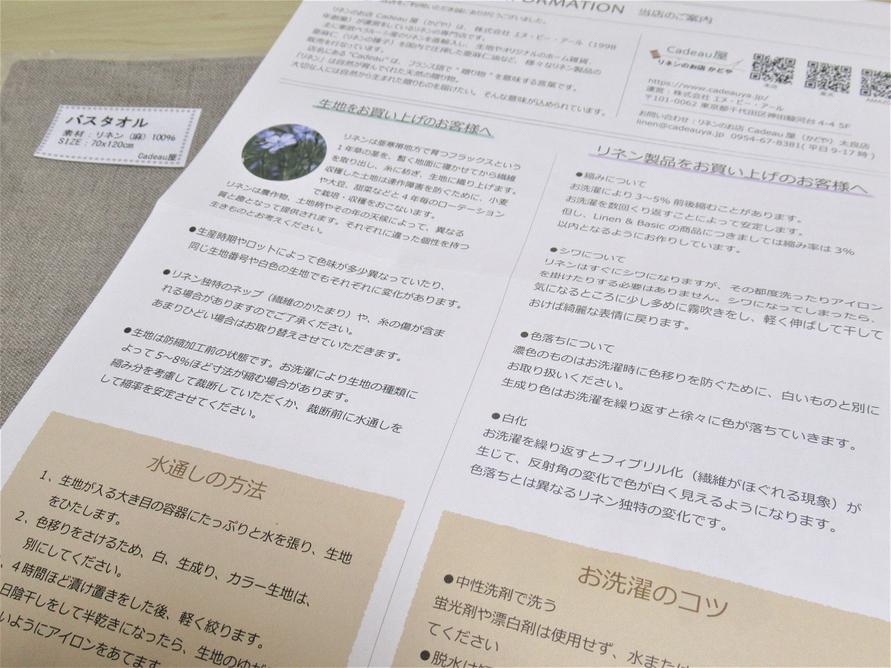 バスタオル
素材：リネン（麻）100％
SIZE：70x120cm
Cadeau屋
INFORMATION 当店のご案内
リネンのお店 Cadeau屋（かどや）は、株式会社 エヌ・ピー・アール（1998
年創業）が運営しているリネンの専門店です。
販売を行なっています。
店名にある "Cadeau" は、フランス語で "贈り物" を意味する言葉です。
「リネン」は自然が育んでくれた天然の贈り物。
大切な人には自然から生まれた贈りものを届けたい。そんな意味が込められています。
Cadeau屋
リネンのお店 かどや
https://www.cadeauya.jp/
運営：株式会社 エヌ・ピー・アール
〒101-0062 東京都千代田区神田駿河台 4-4 5F
お問い合わせ：リネンのお店 Cadeau 屋（かどや）太良店
linen@cadeauya.jp 0954-67-8381( 平日 9-17 時 )
生地をお買い上げのお客様へ
リネンは亜寒帯地方で育つフラックスという
1年草の茎を、暫く地面に寝かせてから繊維
を取り出し、糸に紡ぎ、生地に織り上げます。
収穫した土地は連作障害を防ぐために、小麦
や大豆、甜菜などと 4 年毎のローテーション
で栽培・収穫をおこないます。
リネンは農作物、土地柄やその年の天候によって、異なる
質と量となって提供されます。それぞれに違った個性を持つ
生きものとお考えください。
●生産時期やロットによって色味が多少異なっていたり、
同じ生地番号や白色の生地でもそれぞれに変化があります。
●リネン独特のネップ（繊維のかたまり）や、糸の傷が含ま
れる場合がありますのでご了承ください。
あまりひどい場合はお取り替えさせていただきます。
●生地は防縮加工前の状態です。お洗濯により生地の種類に
よって 5～8％ほど寸法が縮む場合があります。
縮み分を考慮して裁断していただくか、裁断前に水通しを
して縮率を安定させてください。
水通しの方法
1、生地が入る大き目の容器にたっぷりと水を張り、生地
をひたします。
2、色移りをさけるため、白、生成り、カラー生地は、
別にしてください。
、4時間ほど漬け置きをした後、軽く絞ります。
日陰干しをして半乾きになったら、生地のゆが
いようにアイロンをあてます。
リネン製品をお買い上げのお客様へ
●縮みについて
お洗濯により 3～5％ 前後縮むことがあります。
お洗濯を数回くり返すことによって安定します。
但し、Linen & Basic の商品につきましては縮み率は 3％
以内となるようにお作りしています。
●シワについて
リネンはすぐにシワになりますが、その都度洗ったりアイロン
を掛けたりする必要はありません。シワになってしまったら、
気になるところに少し多めに霧吹きをし、軽く伸ばして干して
おけば綺麗な表情に戻ります。
●色落ちについて
濃色のものはお洗濯時に色移りを防ぐために、白いものと別に
お取り扱いください。
生成り色はお洗濯を繰り返すと徐々に色が落ちていきます。
●白化
お洗濯を繰り返すとフィブリル化（繊維がほぐれる現象）が
生じて、反射角の変化で色が白く見えるようになります。
色落ちとは異なるリネン独特の変化です。
お洗濯のコツ
●中性洗剤で洗う
蛍光剤や漂白剤は使用せず、水また
てください
●脱水は